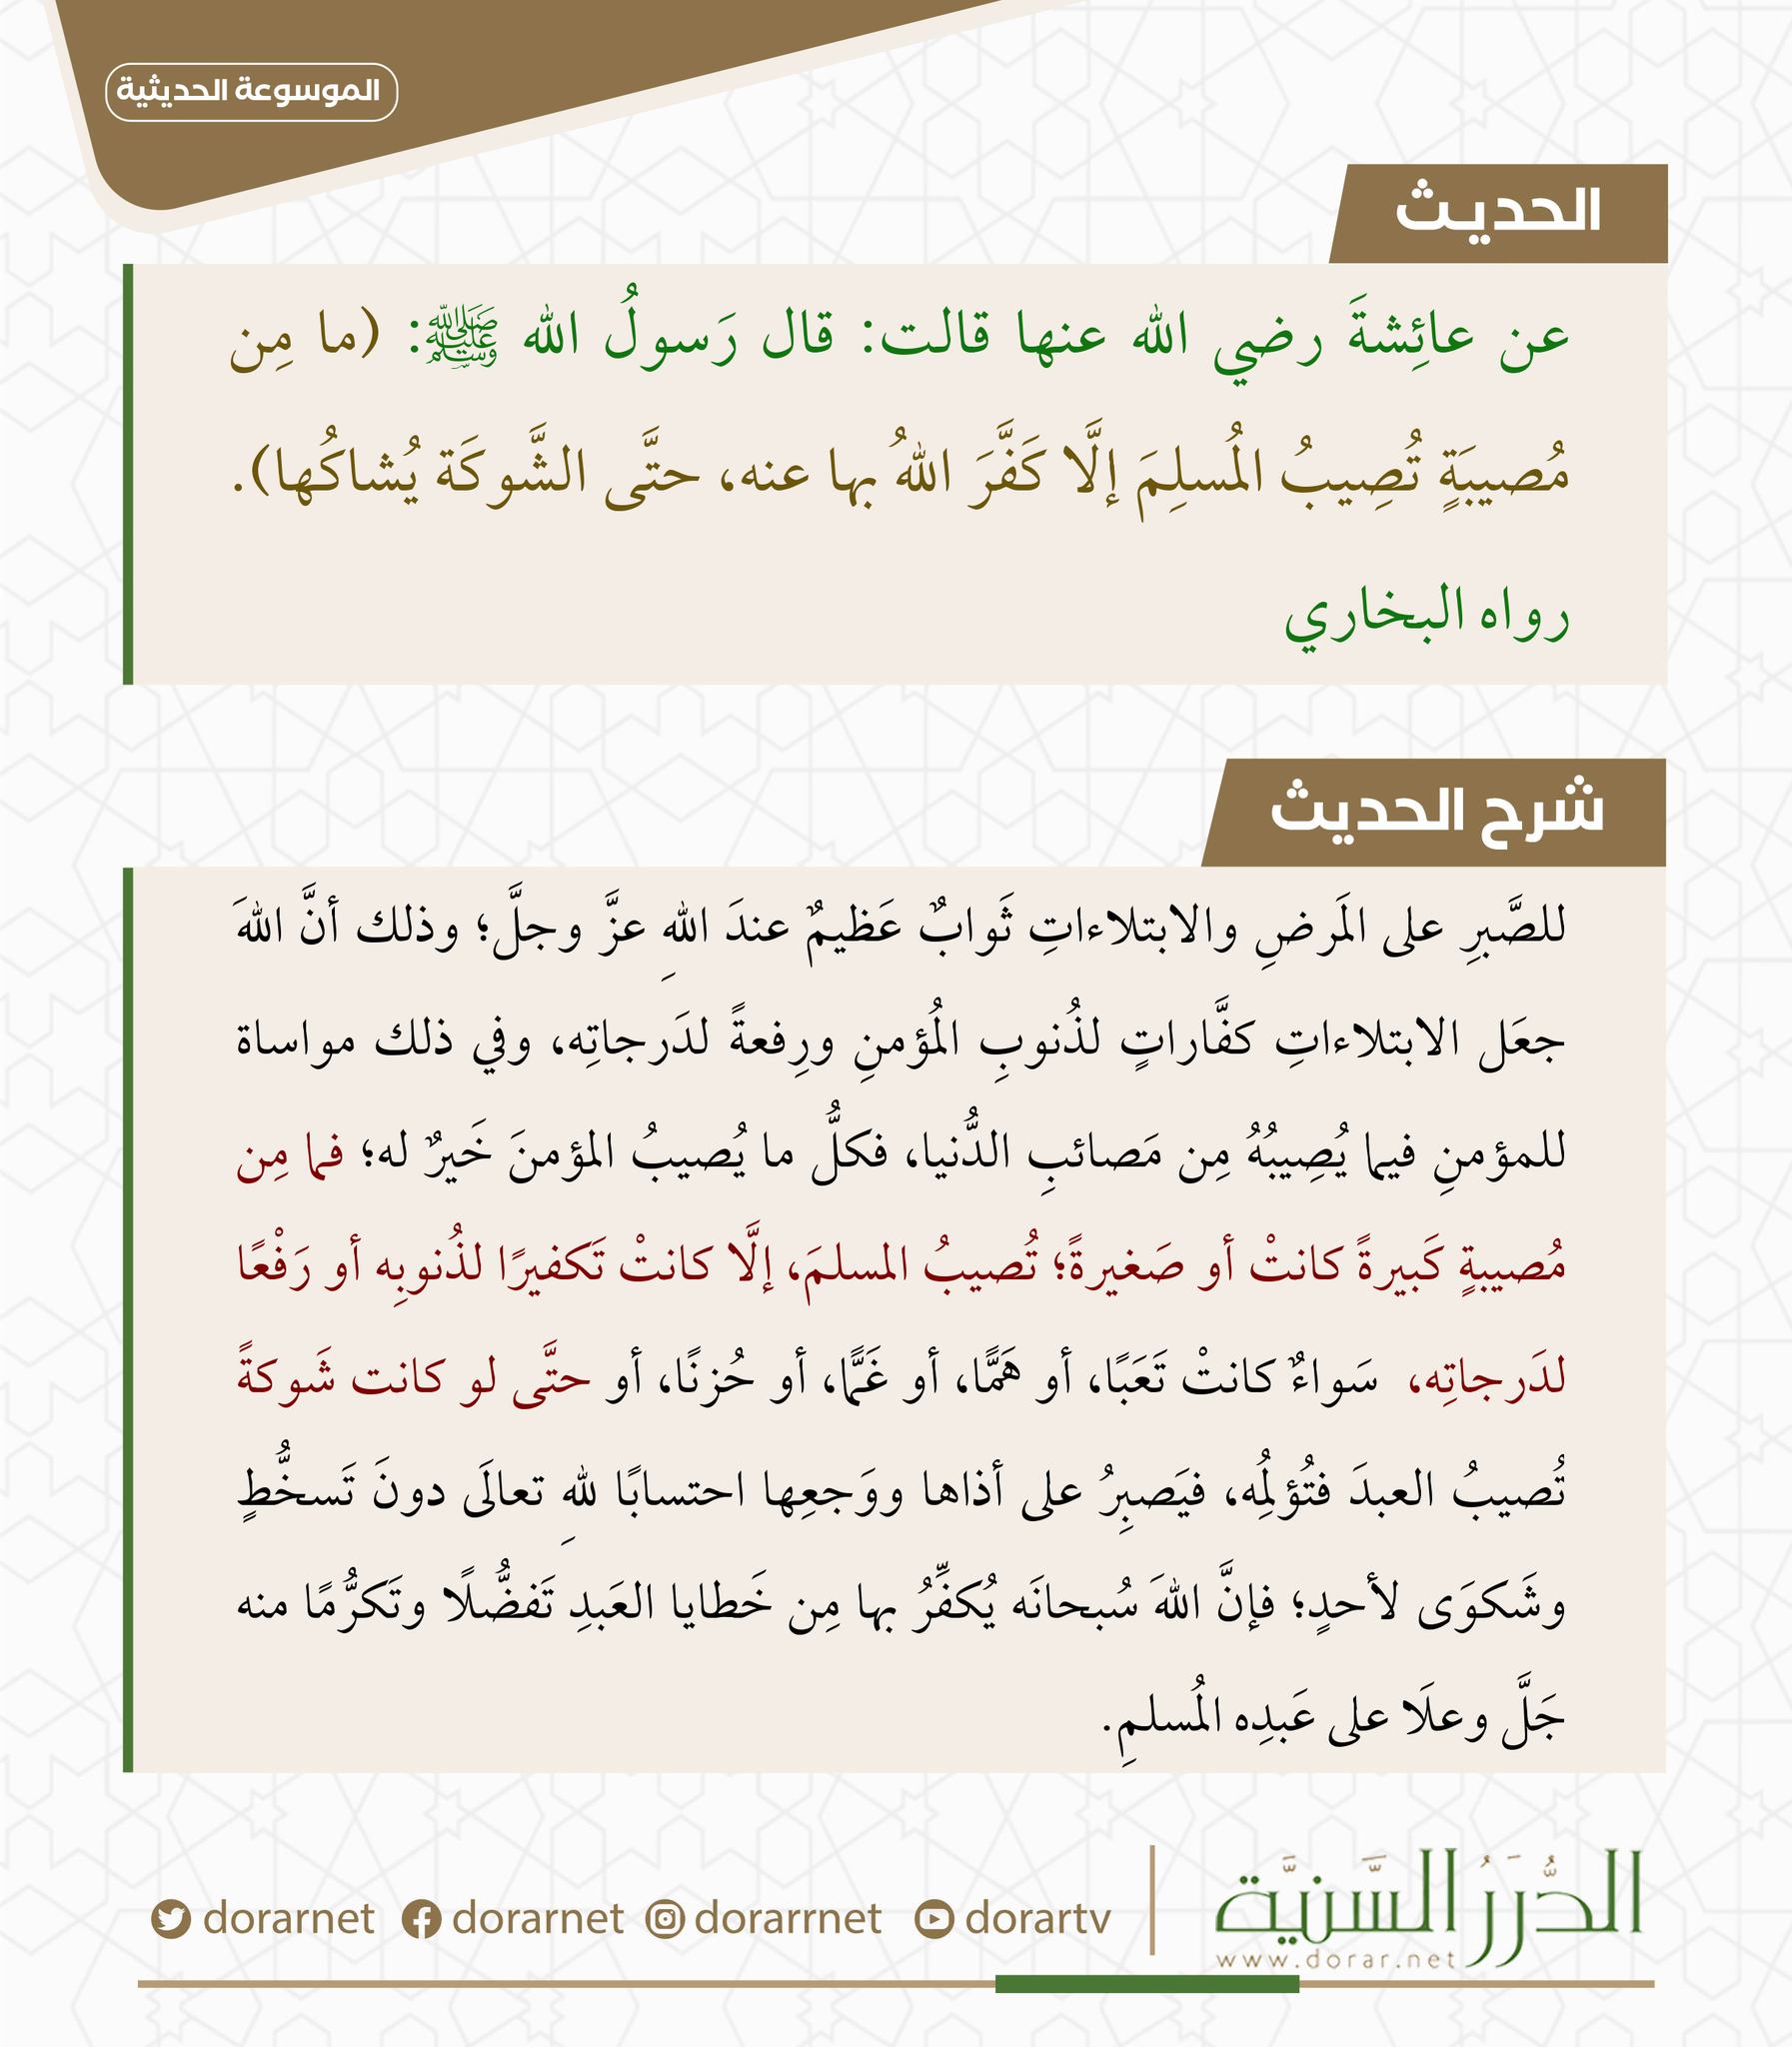 الموسوعة الحديثية
الحديث
عن عائِشةَ رضي الله عنها قالت: قال رَسولُ الله ﷺ: (ما مِن
مُصيبَةٍ تُصِيبُ المُسلِمَ إلَّا كَفَّرَ اللهُ بها عنه، حتَّى الشَّوكَة يُشاكُها).
رواه البخاري
شرح الحديث
للصَّبرِ على المَرضِ والابتلاءاتِ ثَوابٌ عَظيمٌ عندَ اللهِ عزَّ وجلَّ؛ وذلك أنَّ اللهَ
جعَل الابتلاءاتِ كفَّاراتٍ لذُنوبِ المُؤمنِ ورِفعةً لدَرجاتِه، وفي ذلك مواساة
للمؤمنِ فيما يُصِيبُهُ مِن مَصائبِ الدُّنيا، فكلُّ ما يُصيبُ المؤمنَ خَيرٌ له؛ فما مِن
مُصيبةٍ كَبيرةً كانتْ أو صَغيرةً؛ تُصيبُ المسلمَ، إلَّا كانتْ تَكفيرًا لذُنوبِه أو رَفْعًا
لدَرجاتِه، سَواءٌ كانتْ تَعَبًا، أو هَمًّا، أو غَمًّا، أو حُزنًا، أو حتَّى لو كانت شَوكةً
تُصيبُ العبدَ فتُؤلِمُه، فيَصبِرُ على أذاها ووَجعِها احتسابًا للهِ تعالَى دونَ تَسخُّطٍ
وشَكوَى لأحدٍ؛ فإنَّ اللهَ سُبحانَه يُكفِّرُ بها مِن خَطايا العَبدِ تَفضُّلًا وتَكرُّمًا منه
جَلَّ وعلَا على عَبدِه المُسلمِ.
الدُّرَرُ السَّنيَّة
www.dorar.net
dorarnet dorarnet dorarrnet dorartv